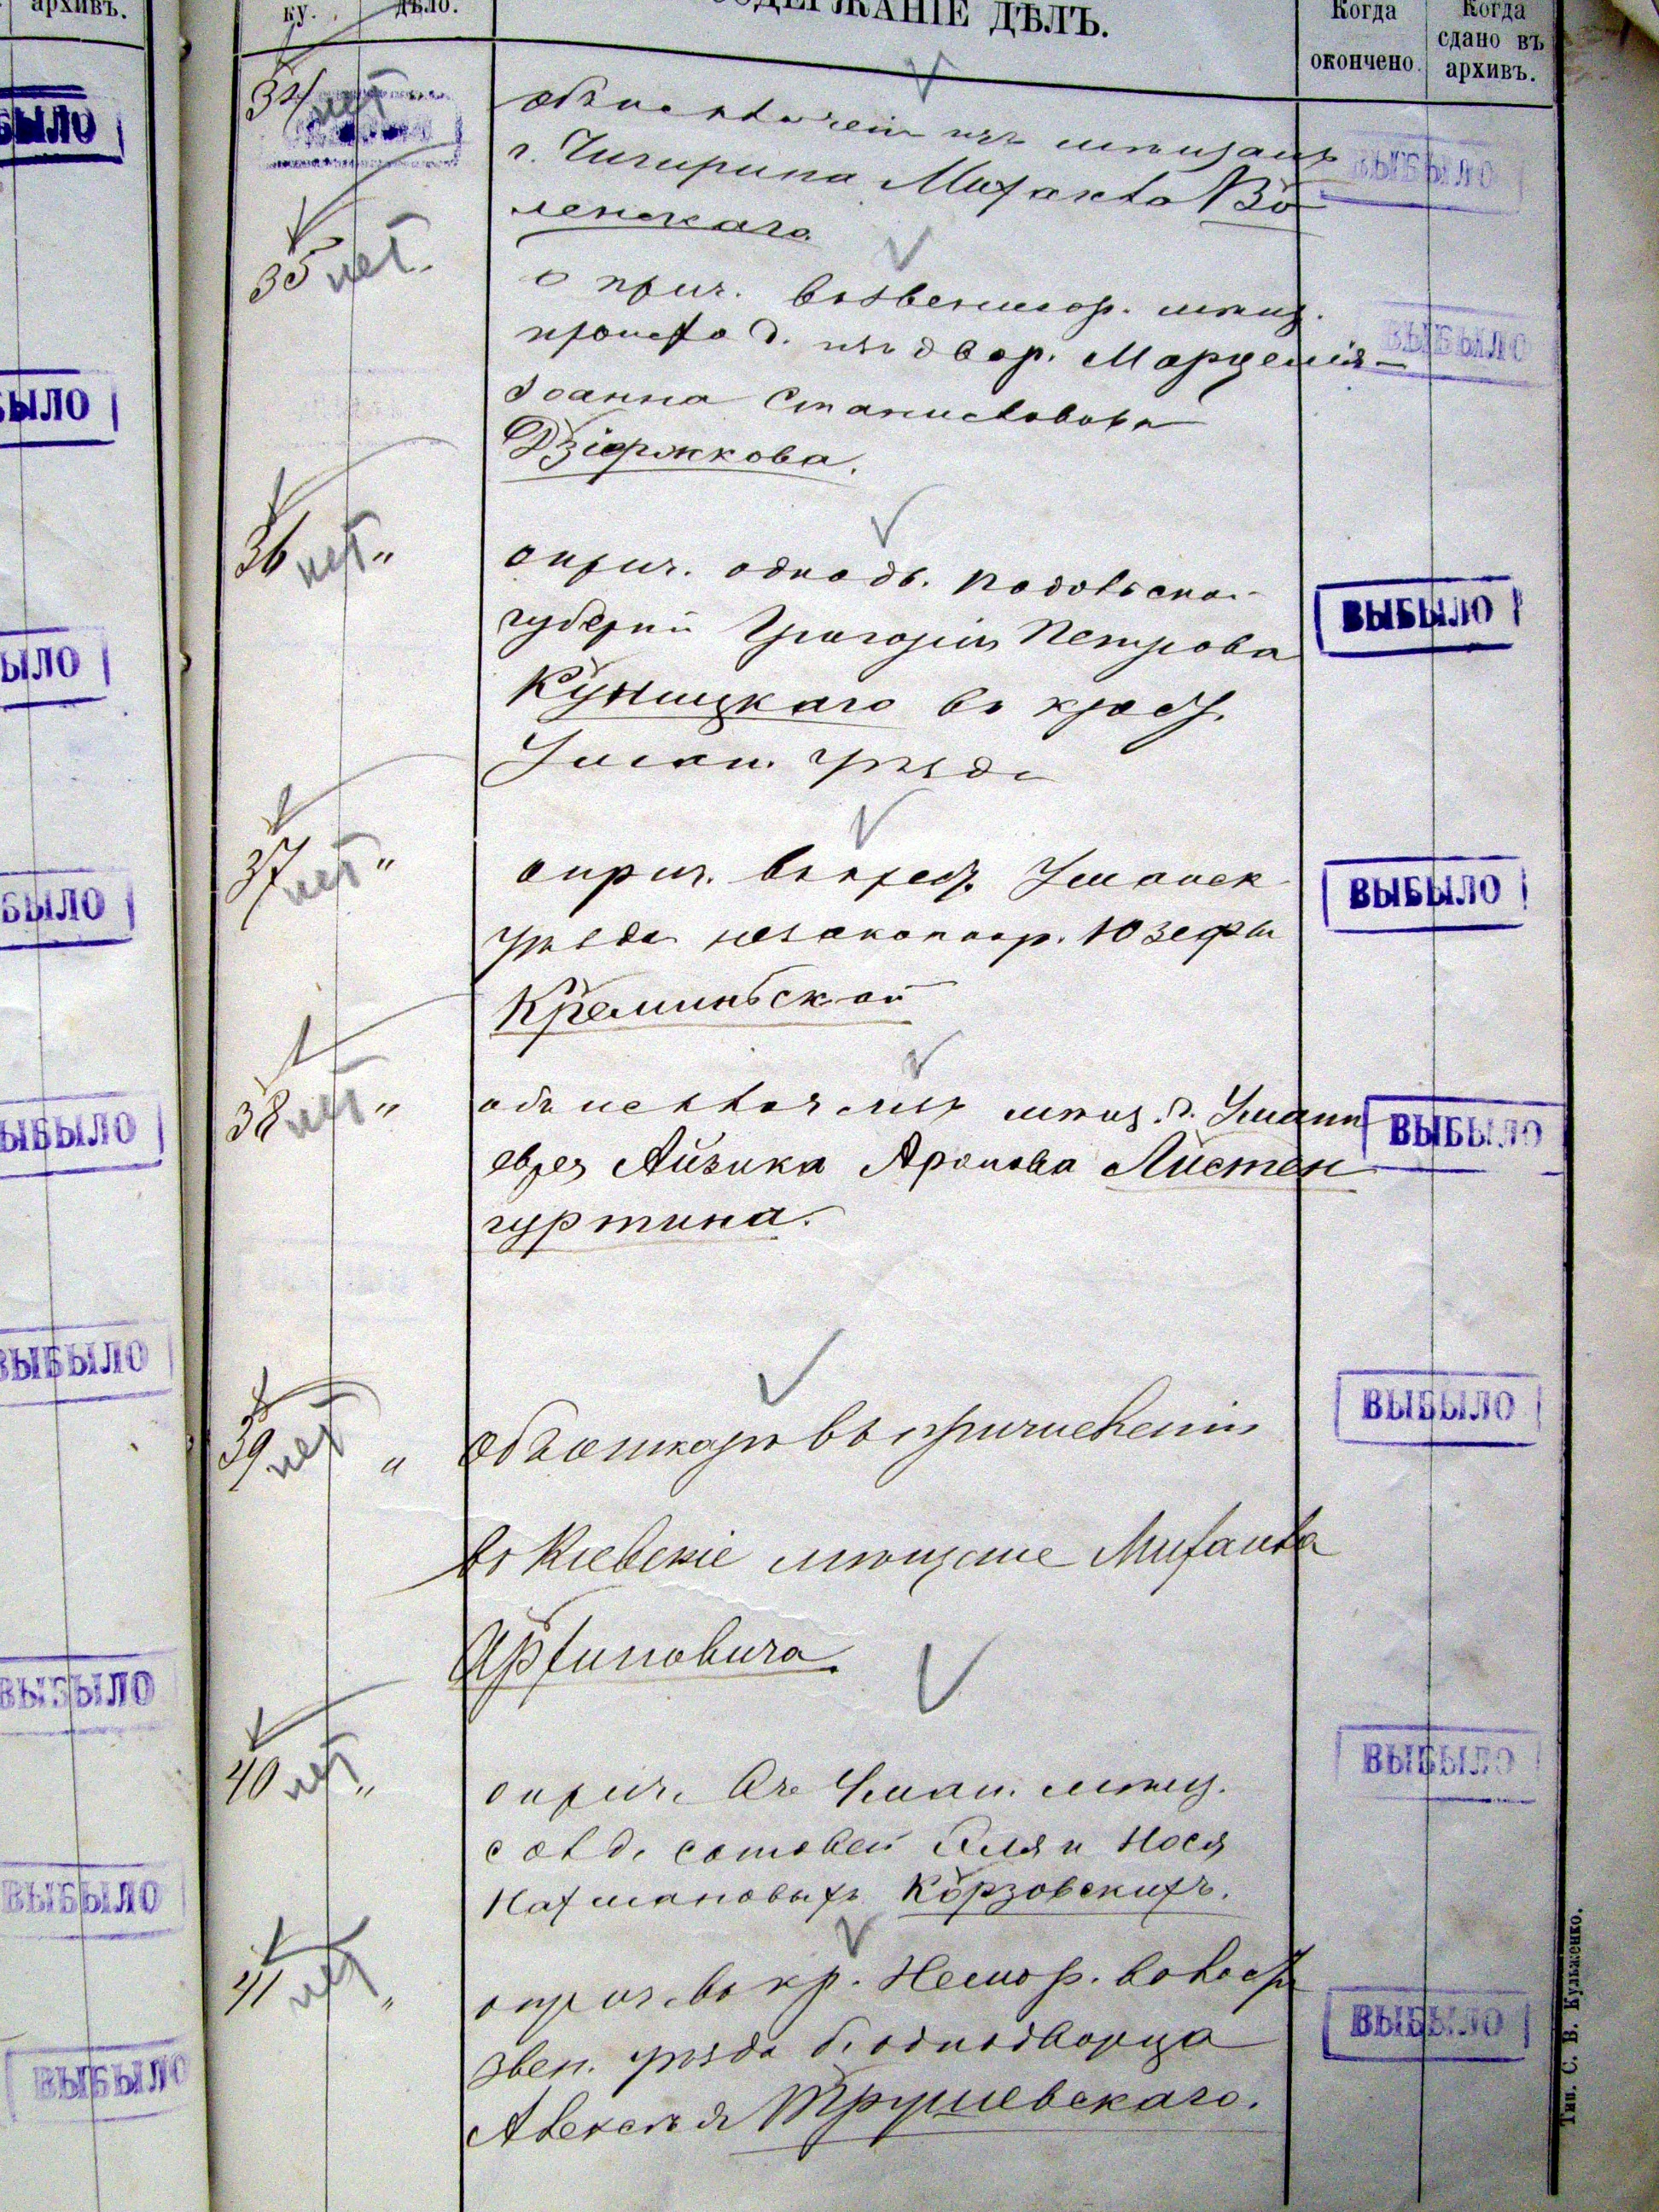 архивъ.
ку.
дѣло.
СОДЕРЖАНІЕ ДѢЛЪ.
Когда
окончено.
Когда
сдано въ
архивъ.
34 нет
объ исключеніи изъ мѣщанъ
г. Чигирина Михаила Во
ленскаго
ВЫБЫЛО
35 нет
о прич. въ Звенигор. мѣщ.
происход. изъ двор. Марцелія-
Іоанна Станиславова
Дзіержкова.
ВЫБЫЛО
36 нет "
о прич. однодв. Подольской
губерніи Григорія Петрова
Куницкаго въ крест.
Уман. уѣзда
ВЫБЫЛО
37 нет "
о прич. въ крест. Уманск
уѣзда незаконнор. Юзефы
Креминьской
ВЫБЫЛО
38 нет "
объ исключ. изъ мѣщ. г. Умани
еврея Айзика Аронова Листен
гуртина.
ВЫБЫЛО
39 нет "
объ отказѣ въ причисленіи
въ Кіевскіе мѣщане Михаила
Ирхиновича.
ВЫБЫЛО
40 нет "
о прич. въ Уман. мѣщ.
солд. сыновей Еля и Нося
Нахмановыхъ Корзовскихъ.
ВЫБЫЛО
41 нет "
о прич. въ кр. Немор. волости
Звен. уѣзда б. однодворца
Алексѣя Трушевскаго.
ВЫБЫЛО
Тип. С. В. Кульженко.